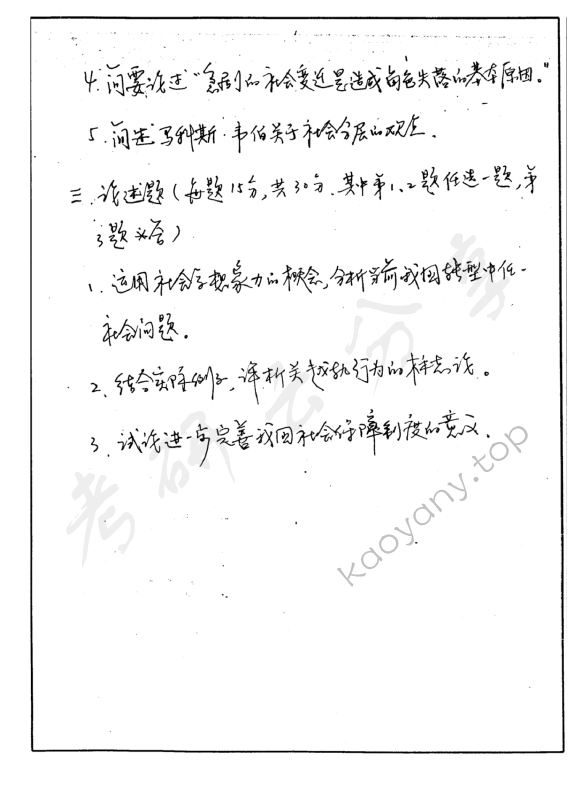 4. 简要论述"急剧的社会变迁是造成角色失落的基本原因。"
5. 简述马科斯·韦伯关于社会分层的观点.
三. 论述题(每题15分,共30分.其中第1、2题任选一题,第
3题必答)
1. 运用社会学想象力的概念,分析当前我国转型中任一
社会问题.
2. 结合实际例子,评析关于越轨行为的标志论。
3. 试论进一步完善我国社会保障制度的意义.
考研云分享
kaoyany.top